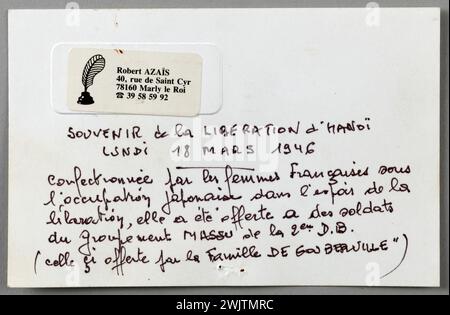 Robert AZAÏS
40, rue de Saint Cyr
78160 Marly le Roi
☎ 39 58 59 92
SOUVENIR de la LIBERATION d'HANOÏ
LUNDI 18 MARS 1946
Confectionnée par les femmes Françaises sous
l'occupation japonaise dans l'espoir de la
libération, elle a été offerte a des soldats
du groupement MASSU de la 2em D.B.
(celle çi offerte par la Famille DE GOUBERVILLE")
alamy
Image ID: 2WJTMRC
www.alamy.com